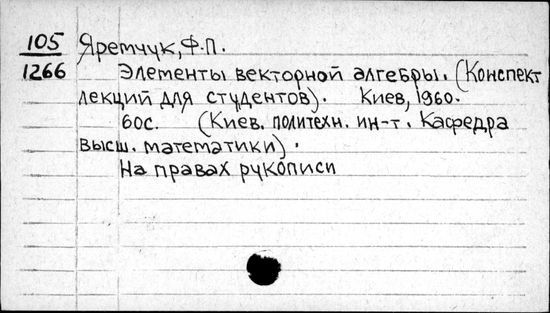 105 Яремчук, Ф.П.
1266 Элементы векторной алгебры. (Конспект
лекций для студентов). Киев, 1960.
60с. (Киев. политехн. ин-т. Кафедра
высш. математики).
На правах рукописи